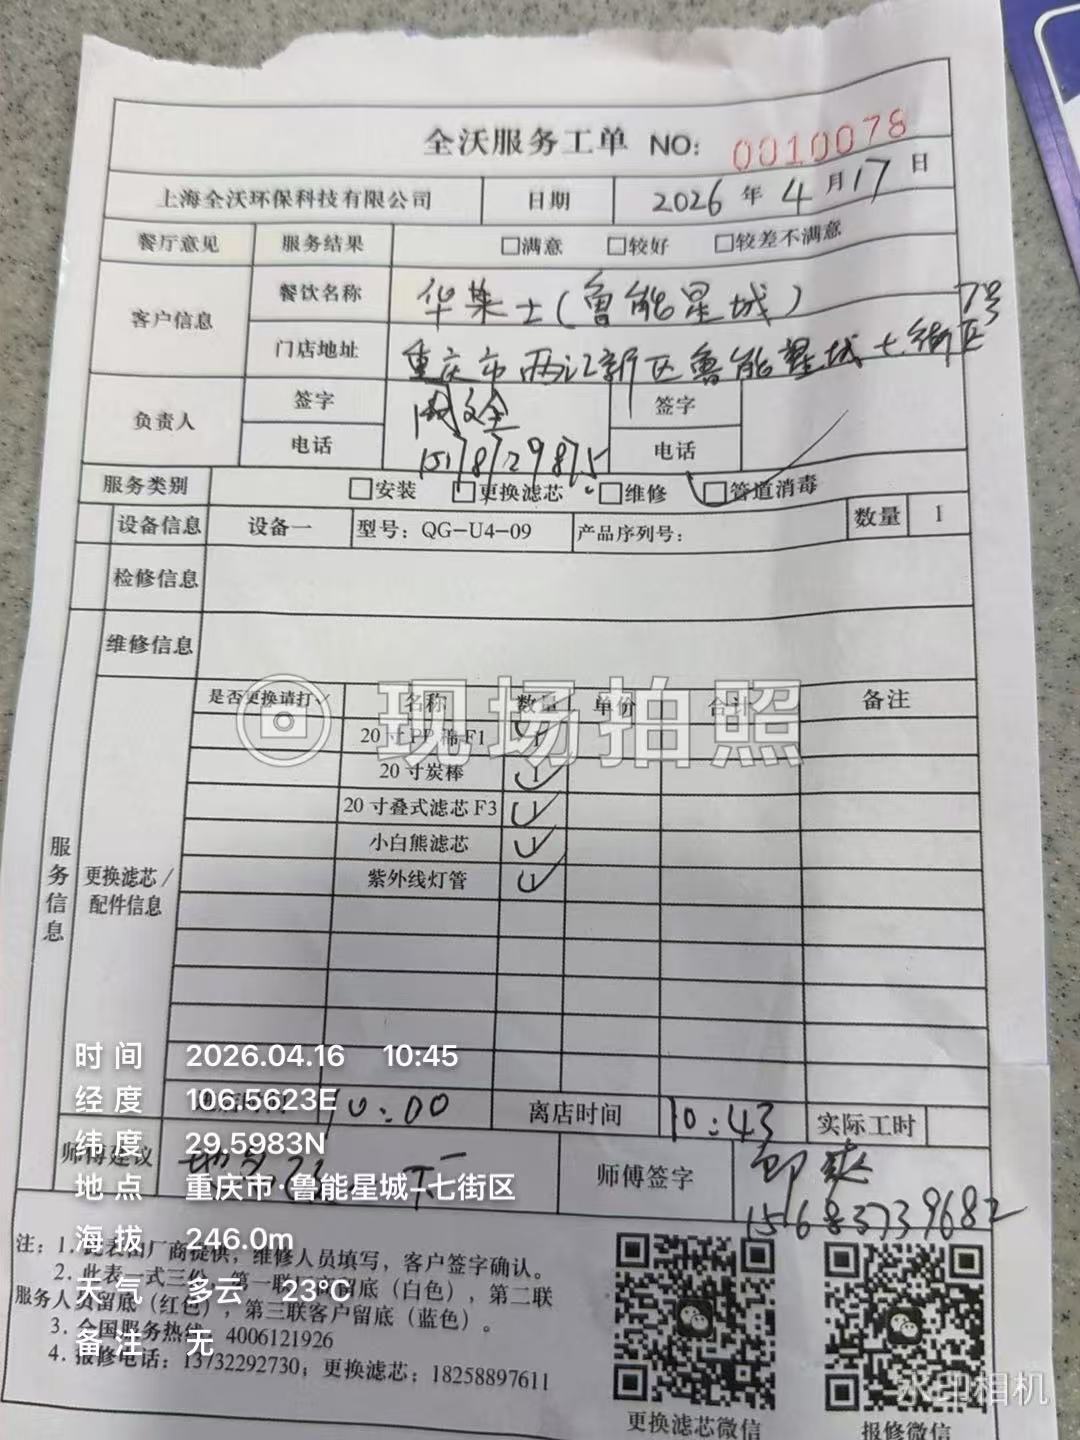 全沃服务工单 NO: 0010078
上海全沃环保科技有限公司 日期 2026年4月17日
餐厅意见 服务结果 □满意 □较好 □较差不满意
客户信息 餐饮名称 华莱士(鲁能星城)
门店地址 重庆市两江新区鲁能星城七街区7号
负责人 签字 签字
电话 15178729875 电话
服务类别 □安装 □更换滤芯 □维修 □管道消毒
设备信息 设备一 型号：QG-U4-09 产品序列号： 数量 1
检修信息
维修信息
服务信息
更换滤芯/配件信息
是否更换请打√ 名称 数量 单价 合计 备注
20寸PP棉F1 1
20寸炭棒 1
20寸叠式滤芯F3 1
小白熊滤芯 1
紫外线灯管 1
现场拍照
10:00 离店时间 10:43 实际工时
师傅建议 师傅签字
15683739682
时间 2026.04.16 10:45
经度 106.5623E
纬度 29.5983N
地点 重庆市·鲁能星城-七街区
海拔 246.0m
天气 多云 23℃
备注 无
注：1. 此表由厂商提供，维修人员填写，客户签字确认。
2. 此表一式三份，第一联厂商留底（白色），第二联
服务人员留底（红色），第三联客户留底（蓝色）。
3. 全国服务热线：4006121926
4. 报修电话：13732292730；更换滤芯：18258897611
更换滤芯微信 报修微信
水印相机